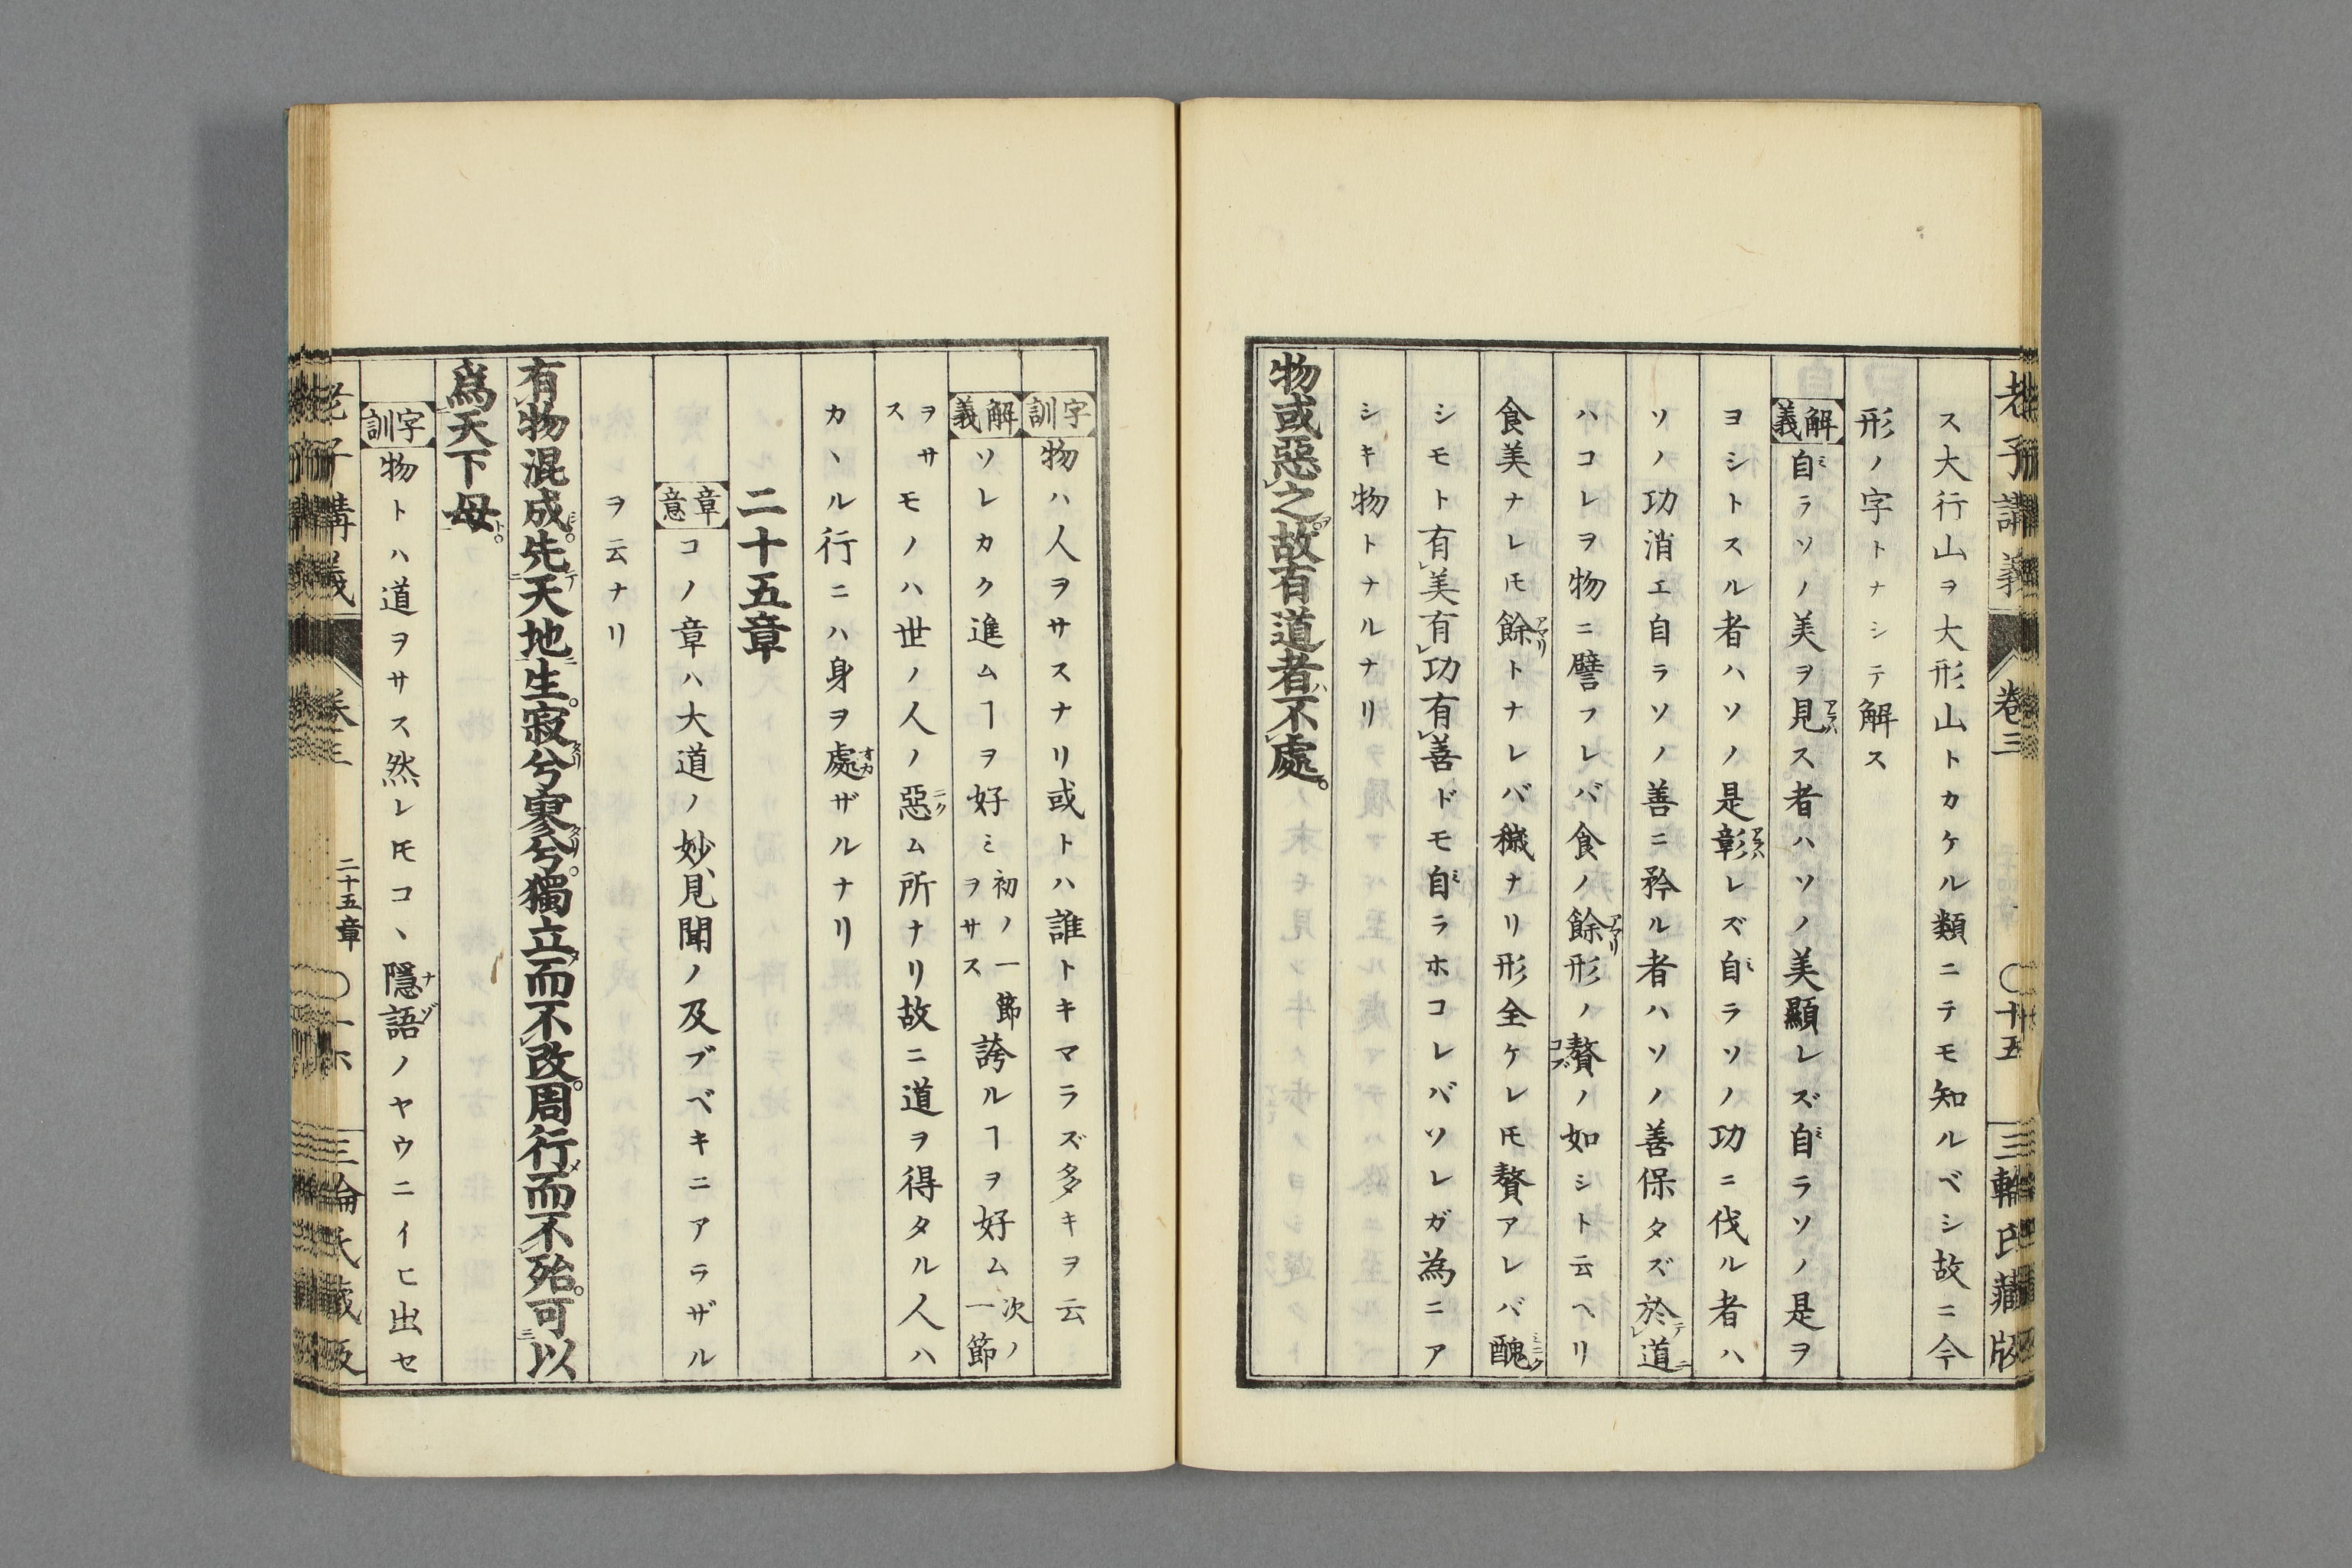 老子講義 卷三 〇十五 三輪氏藏版
ス大行山ヲ大形山トカケル類ニテモ知ルベシ故ニ今
形ノ字トナシテ解ス
解義 自ラソノ美ヲ見ス者ハソノ美顯レズ自ラソノ是ヲ
ヨシトスル者ハソノ是彰レズ自ラソノ功ニ伐ル者ハ
ソノ功消エ自ラソノ善ニ矜ル者ハソノ善保タズ於道
ハコレヲ物ニ譬フレバ食ノ餘形ノ贅ノ如シト云ヘリ
食美ナレ𪜈餘トナレバ穢ナリ形全ケレ𪜈贅アレバ醜
シモト有美有功有善ドモ自ラホコレバソレガ為ニア
シキ物トナルナリ
物或惡之故有道者不處
字訓 物ハ人ヲサスナリ或トハ誰トキマラズ多キヲ云
解義 ソレカク進ムヿヲ好ミ初ノ一節ヲサス誇ルヿヲ好ム次ノ一節
ヲサス モノハ世ノ人ノ惡ム所ナリ故ニ道ヲ得タル人ハ
カヽル行ニハ身ヲ處ザルナリ
二十五章
章意 コノ章ハ大道ノ妙見聞ノ及ブベキニアラザル
ヲ云ナリ
有物混成先天地生寂兮寥兮獨立而不改周行而不殆可以
爲天下母
字訓 物トハ道ヲサス然レ𪜈コヽ隱語ノヤウニイヒ出セ
老子講義 卷三 二十五章 〇十六 三輪氏藏版